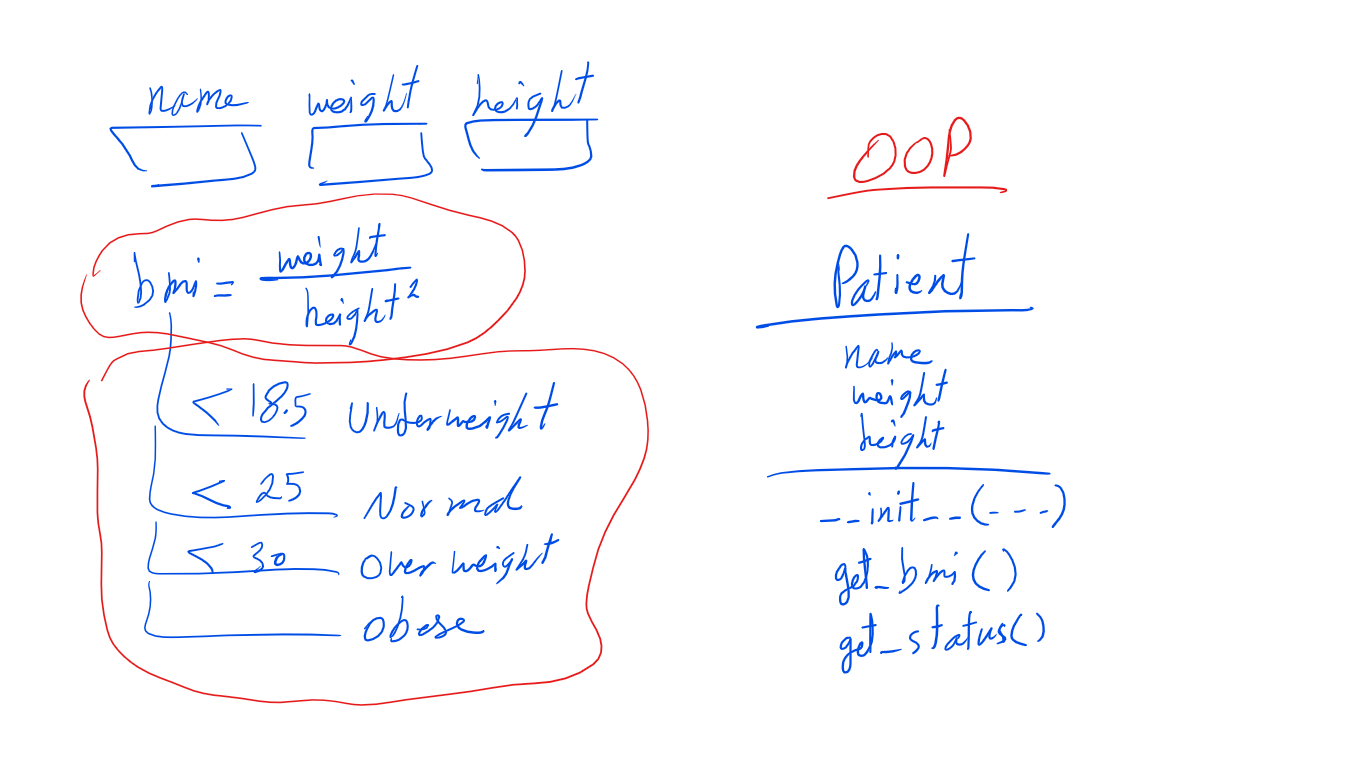 name weight height
bmi = weight
height²
< 18.5 Underweight
< 25 Normal
< 30 Overweight
obese
OOP
Patient
name
weight
height
__init__(---)
get_bmi()
get_status()